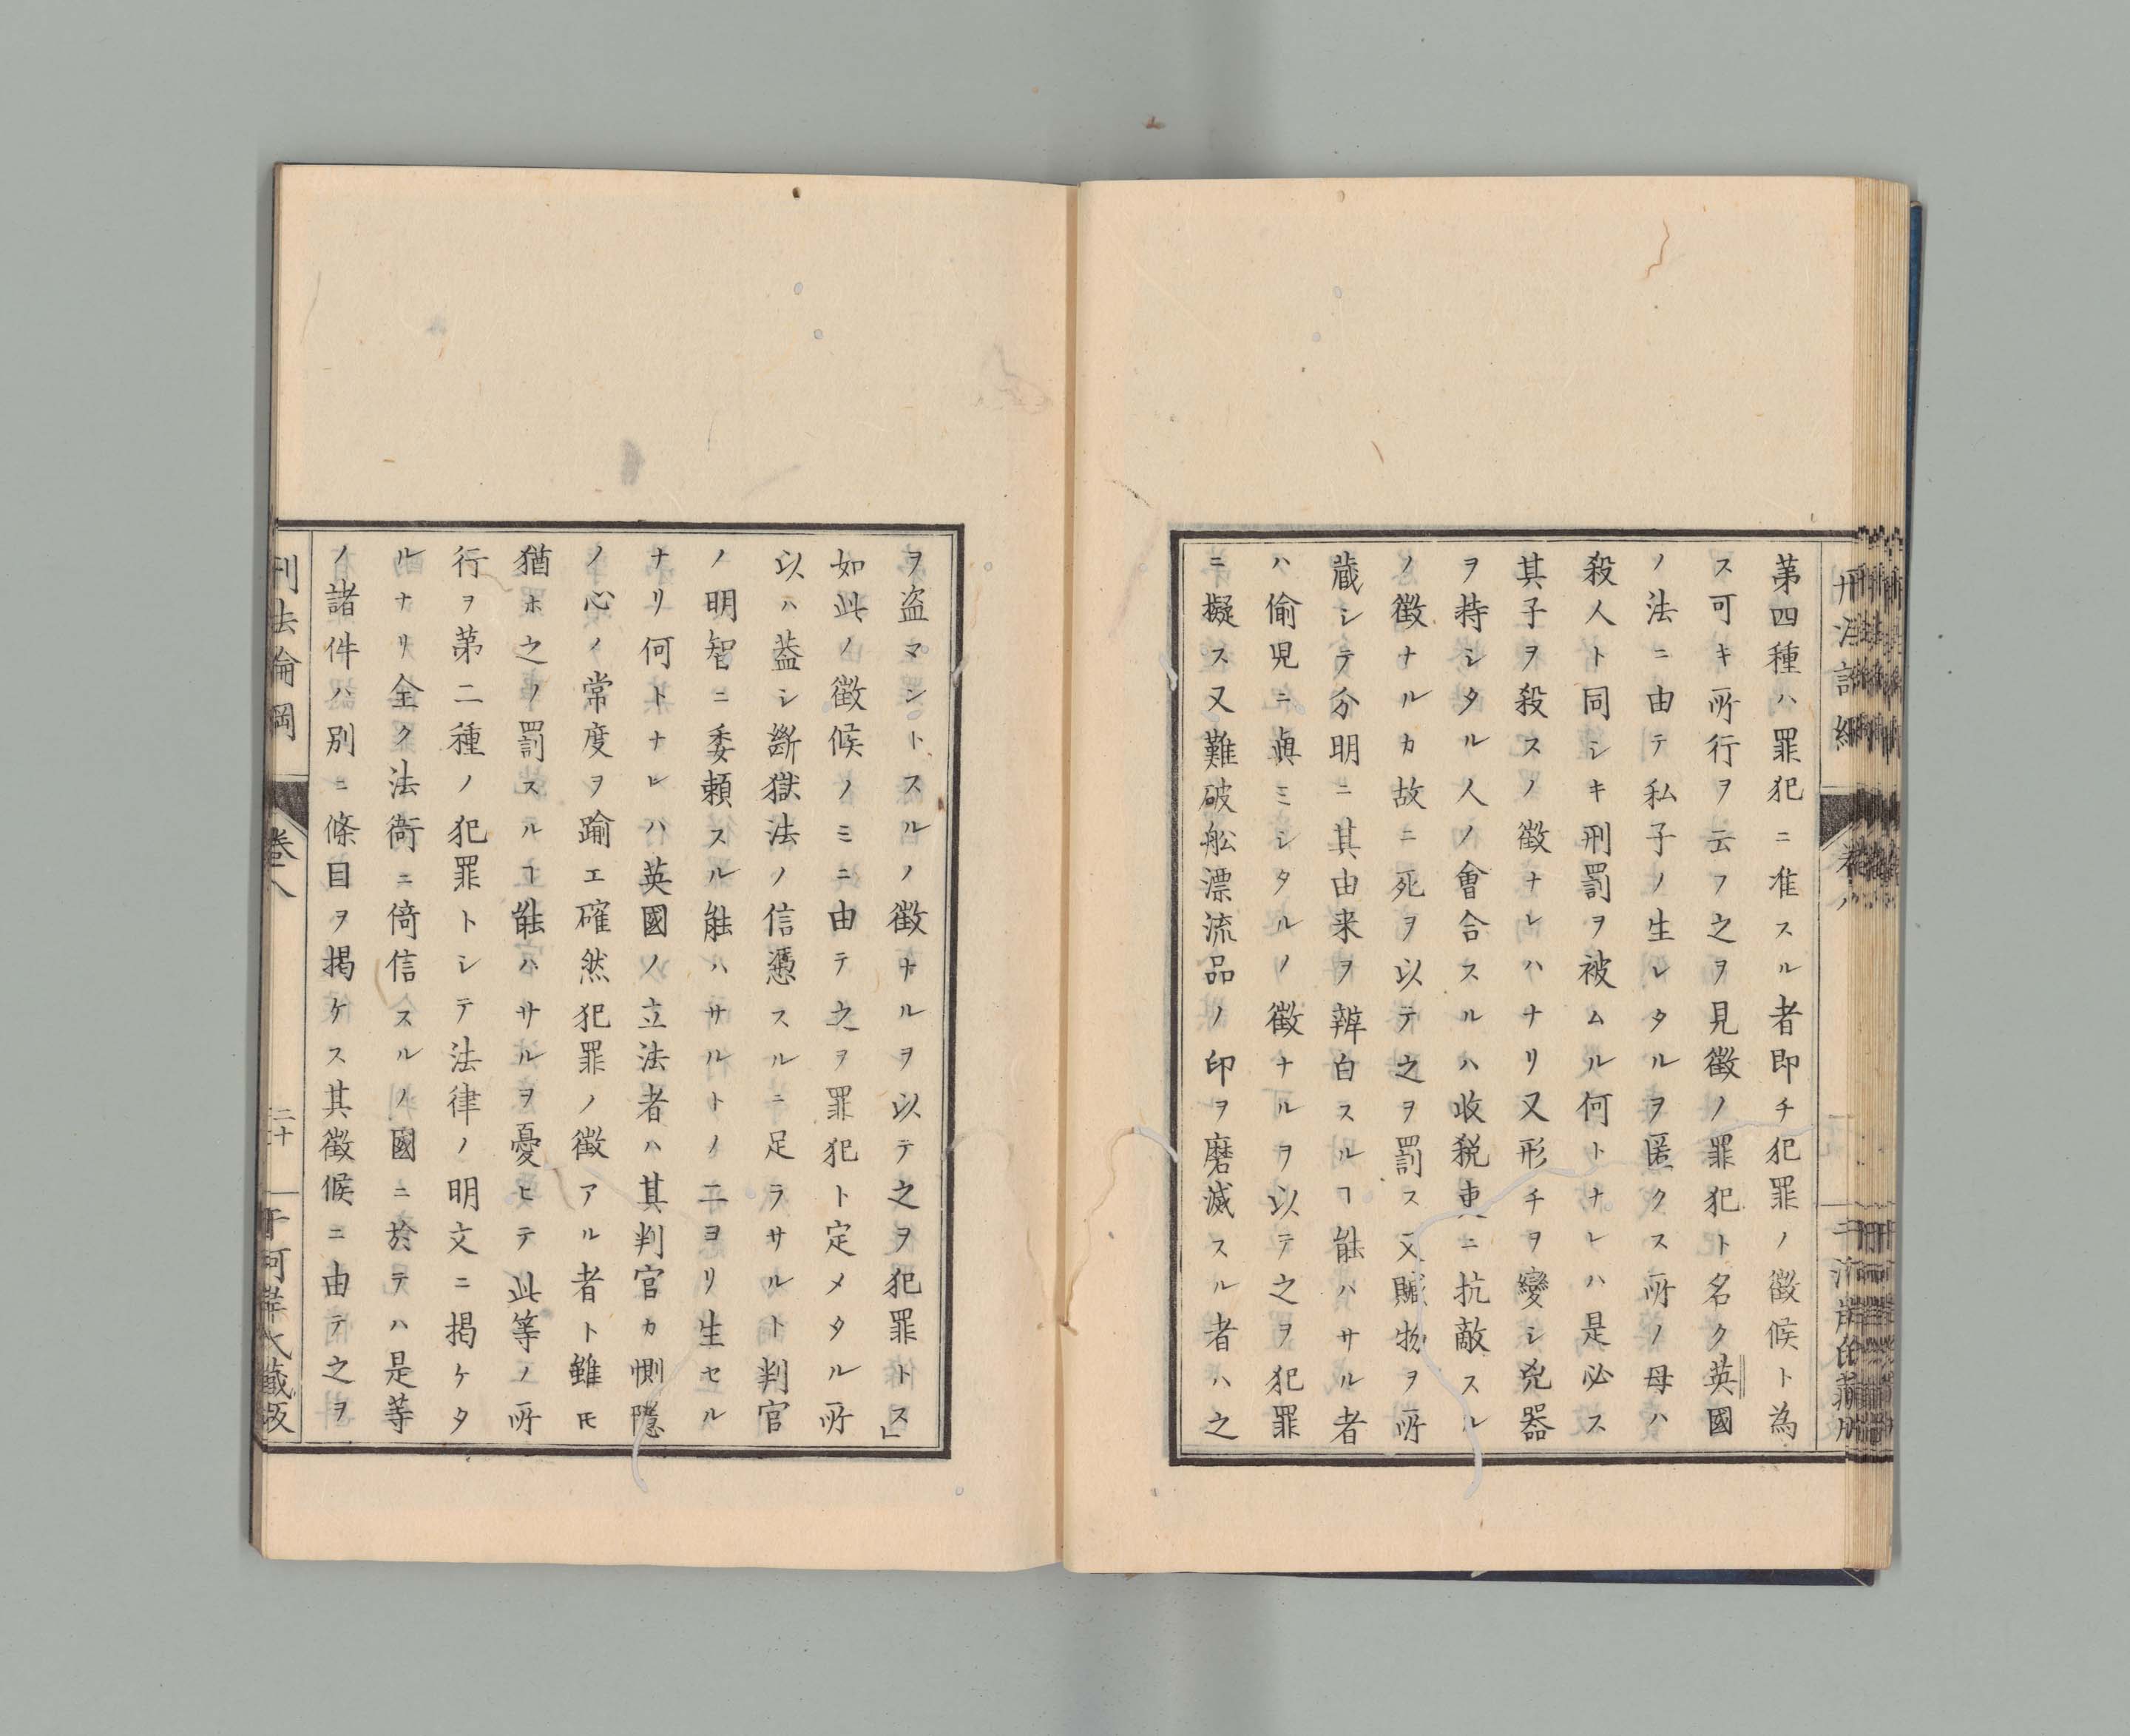 第四種ハ罪犯ニ准スル者即チ犯罪ノ徴候ト為
ス可キ所行ヲ云フ之ヲ見徴ノ罪犯ト名ク英國
ノ法ニ由テ私子ノ生レタルヲ匿クス所ノ母ハ
殺人ト同シキ刑罰ヲ被ムル何トナレハ是必ス
其子ヲ殺スノ徴ナレハナリ又形チヲ變シ兇器
ヲ持シタル人ノ會合スルハ收税吏ニ抗敵スル
ノ徴ナルカ故ニ死ヲ以テ之ヲ罰ス又贓物ヲ所
蔵シテ分明ニ其由来ヲ辨白スルヿ能ハサル者
ハ偷児ニ與ミシタルノ徴ナルヲ以テ之ヲ犯罪
ニ擬ス又難破舩漂流品ノ印ヲ磨滅スル者ハ之
ヲ盗マントスルノ徴ナルヲ以テ之ヲ犯罪トス」
如此ノ徴候ノミニ由テ之ヲ罪犯ト定メタル所
以ハ蓋シ斷獄法ノ信憑スルニ足ラサルト判官
ノ明智ニ委頼スル能ハサルトノ二ヨリ生セル
ナリ何トナレハ英國ノ立法者ハ其判官カ惻隠
ノ心ノ常度ヲ踰エ確然犯罪ノ徴アル者ト雖𪜈
猶ホ之ノ罰スルヿ能ハサルヲ憂ヒテ此等ノ所
行ヲ第二種ノ犯罪トシテ法律ノ明文ニ掲ケタ
ルナリ全ク法衙ニ倚信スルノ國ニ於テハ是等
ノ諸件ハ別ニ條目ヲ掲ケス其徴候ニ由テ之ヲ
刑法論綱
卷八
二十